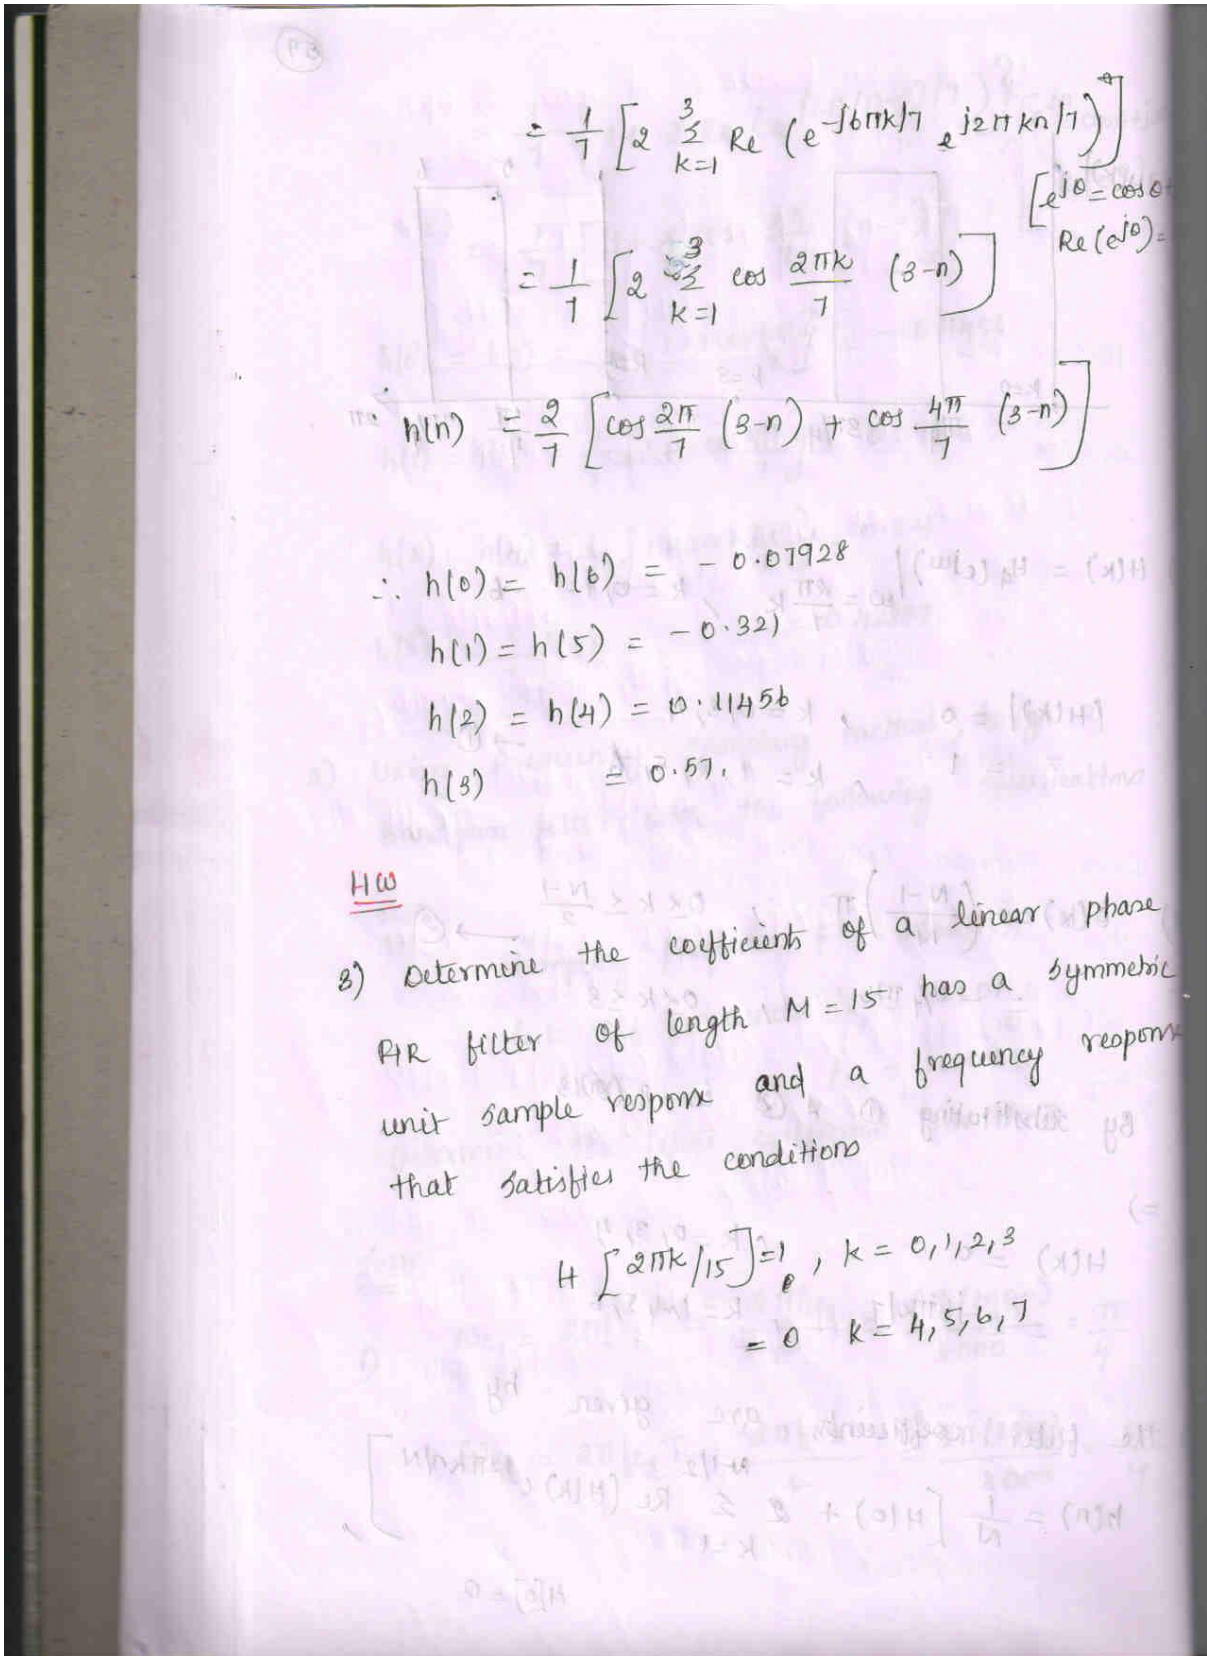 = 1/7 [2 3Σk=1 Re (e^-j6πk/7 e^j2πkn/7)]
[e^jθ = cosθ+
Re(e^jθ) =
= 1/7 [2 3Σk=1 cos 2πk/7 (3-n)]
h(n) = 2/7 [cos 2π/7 (3-n) + cos 4π/7 (3-n)]
∴ h(0) = h(6) = - 0.07928
h(1) = h(5) = -0.321
h(2) = h(4) = 0.11456
h(3) = 0.57.
HW
3) Determine the coefficients of a linear phase
FIR filter of length M = 15 has a symmetric
unit sample response and a frequency response
that satisfies the conditions
H [2πk/15] = 1, k = 0,1,2,3
= 0 k = 4,5,6,7